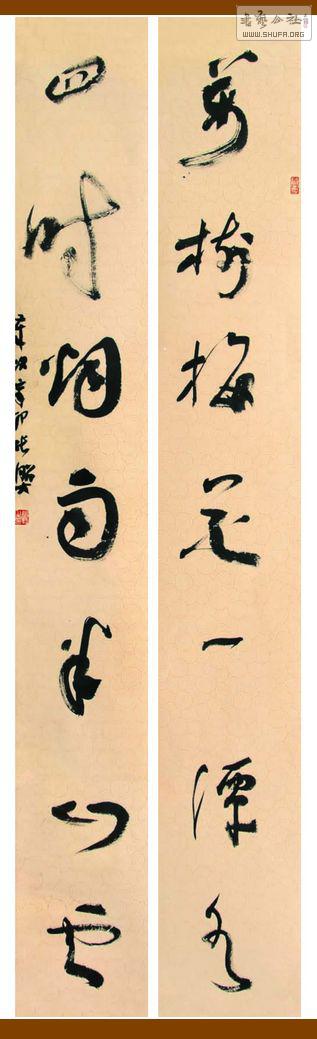 萬樹梅花一潭水
四時烟雨半山雲
辛卯
書藝公社
WWW.SHUFA.ORG